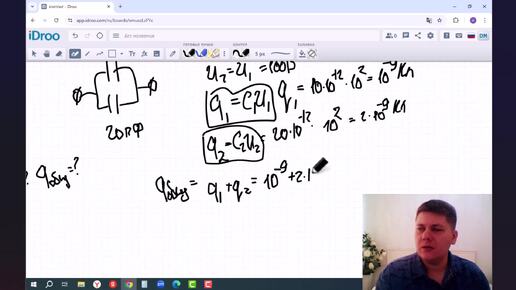 Untitled - iDroo
app.idroo.com/ru/boards/
iDroo
5 px
DM
U₂=U₁=100В
q₁=C₁U₁ q₁=10·10⁻¹²·10²=10⁻⁹Кл
20пФ
q₂=C₂U₂=20·10⁻¹²·10²=2·10⁻⁹Кл
qобщ=?
qобщ=q₁+q₂=10⁻⁹+2·1